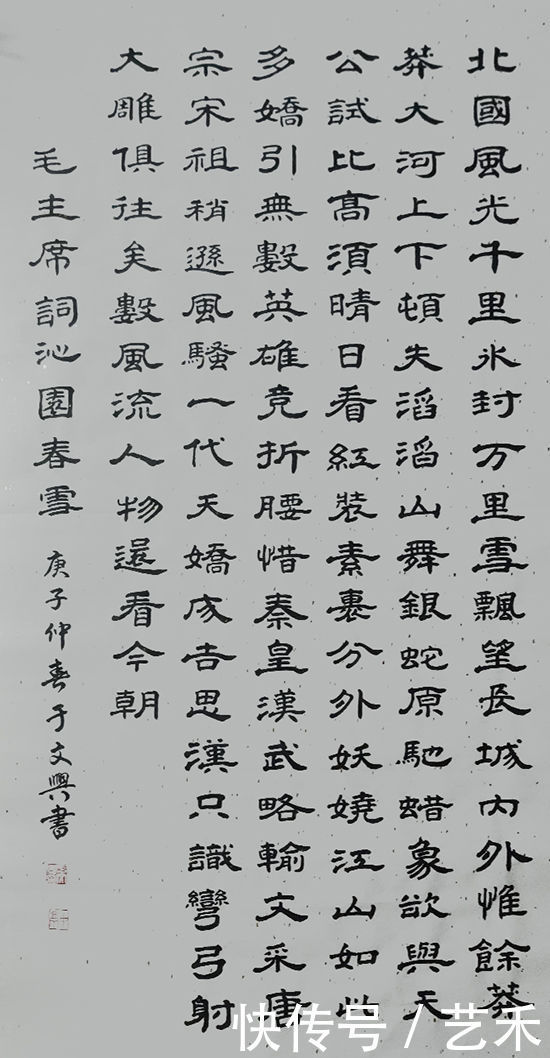 北國風光千里氷封万里雪飄望長城内外惟餘莽
莽大河上下頓失滔滔山舞銀蛇原馳蜡象欲與天
公試比高須晴日看紅裝素裹分外妖嬈江山如此
多嬌引無數英雄竞折腰惜秦皇漢武略輸文采唐
宗宋祖稍遜風騷一代天嬌成吉思漢只識彎弓射
大雕俱往矣數風流人物還看今朝
毛主席詞沁園春雪 庚子仲春于文興書
快传号 / 艺禾